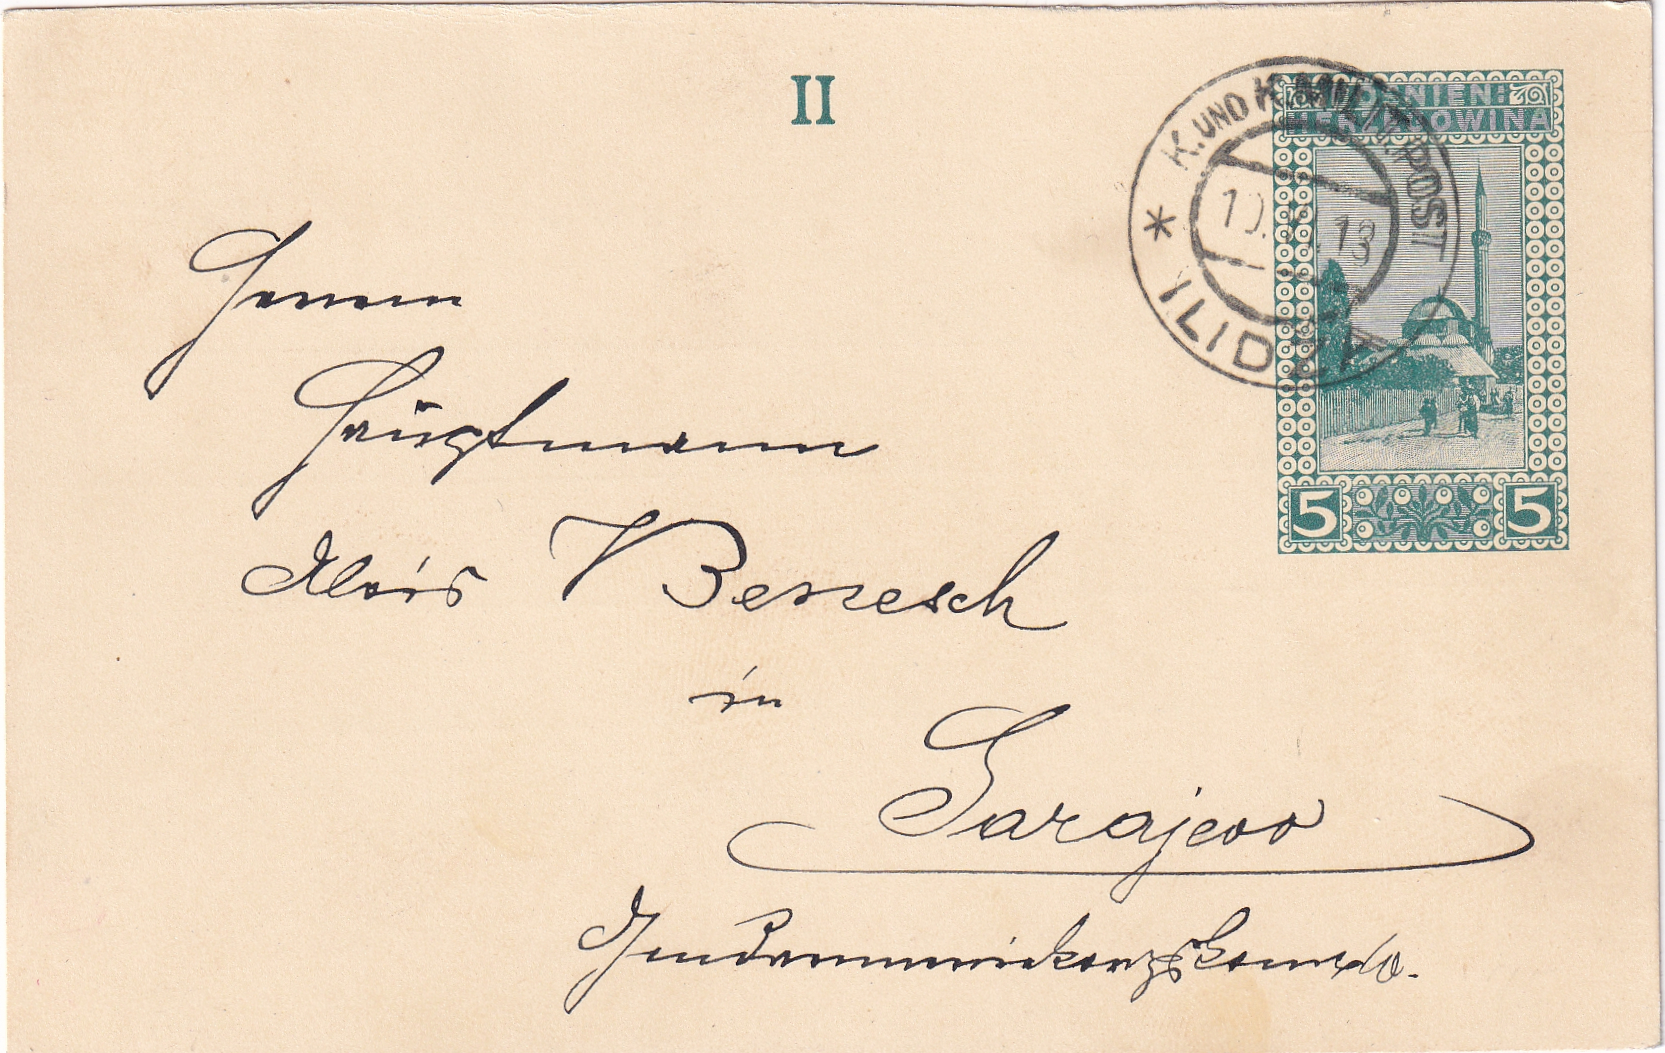 II
BOSNIEN-
HERZEGOWINA
K. UND K. MILIT. POST
10. 13
* ILIDŽE
5 5
Herrn
Hauptmann
Alois Benesch
in
Sarajevo
Gendarmeriekorpskomdo.